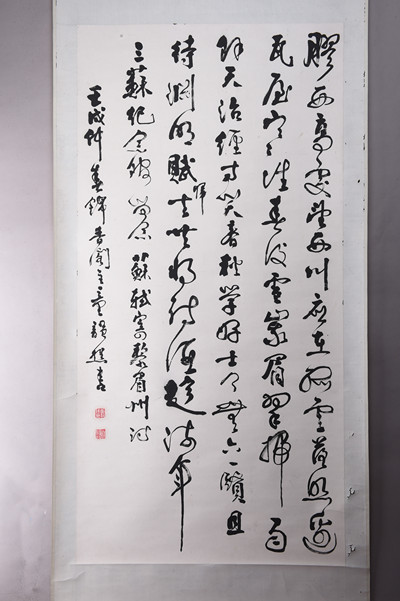 膠西高處望西川應在孤雲落照邊
瓦屋寒堆春後雪峨眉翠掃雨
餘天治經方笑春秋學好士今無六一賢且
待淵明賦歸去共將詩酒趁流年
三蘇紀念館留念 蘇軾寄黎眉州詩
壬戌竹春錦香閣主童韻樵書